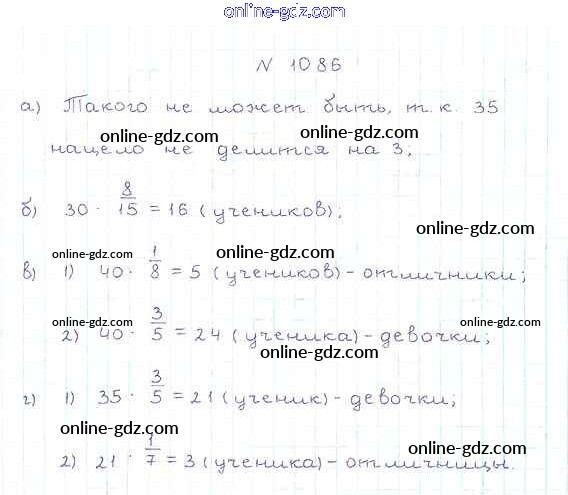 online-gdz.com
N 1086
а) Такого не может быть, т.к. 35
online-gdz.com online-gdz.com
нацело не делится на 3;
б) 30 · 8/15 = 16 (учеников);
online-gdz.com
online-gdz.com online-gdz.com
в) 1) 40 · 1/8 = 5 (учеников) - отличники;
online-gdz.com online-gdz.com
2) 40 · 3/5 = 24 (ученика) - девочки;
online-gdz.com
г) 1) 35 · 3/5 = 21 (ученик) - девочки;
online-gdz.com
online-gdz.com
2) 21 · 1/7 = 3 (ученика) - отличницы.
online-gdz.com online-gdz.com